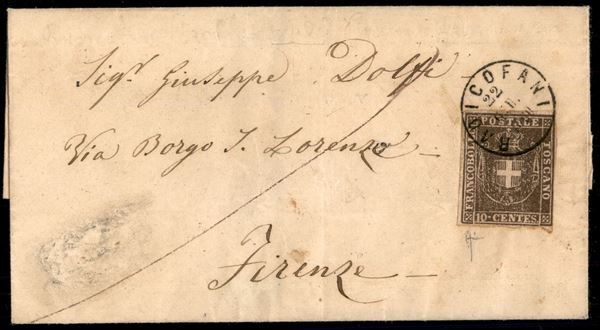 Sig.r Giuseppe Dolfi
Via Borgo S. Lorenzo
Firenze
RADICOFANI
22
FRANCOBOLLO
POSTALE
TOSCANO
10 CENTES